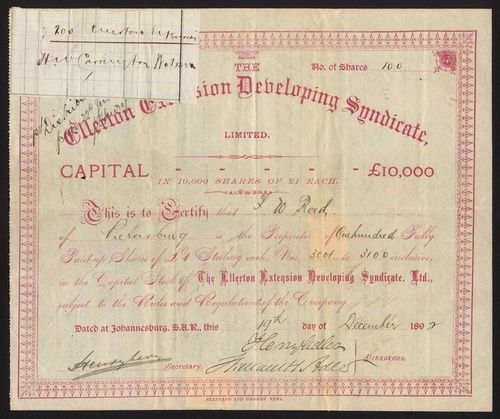 200
H. W. Carrington
THE
No. of Shares 100
Ellerton Extension Developing Syndicate,
LIMITED.
CAPITAL - - - - - - £10,000
IN 10,000 SHARES OF £1 EACH.
This is to Certify that J W Reed
of Pietersburg is the Proprietor of One hundred Fully
Paid-up Shares of £1 Sterling each, Nos. 3001 to 3100 inclusive,
in the Capital Stock of The Ellerton Extension Developing Syndicate, Ltd.,
subject to the Rules and Regulations of the Company
Dated at Johannesburg, S.A.R., this 19th day of December 1892
Directors.
Secretary.